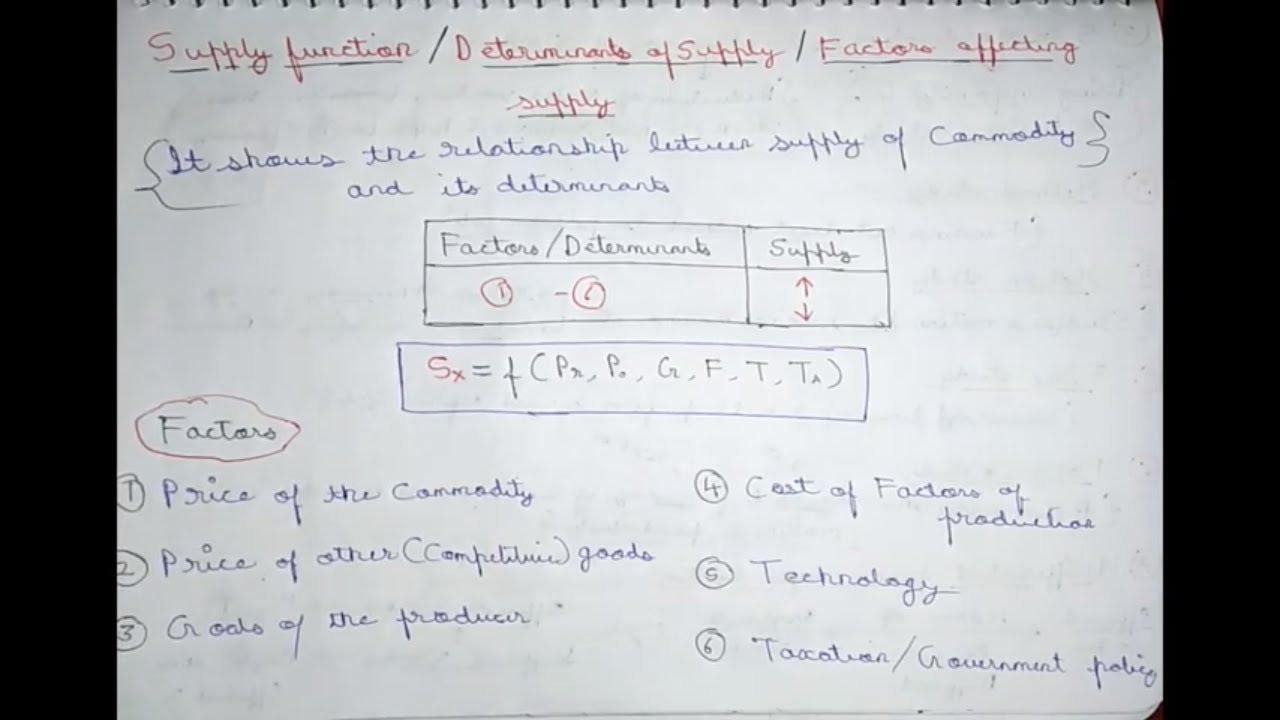 Supply function / Determinants of Supply / Factors affecting
supply
It shows the relationship between supply of Commodity
and its determinants
Factors/Determinants Supply
① - ⑥ ↑ ↓
Sx = f (Pr, Po, G, F, T, TA)
Factors
① Price of the Commodity
② Price of other (Competitive) goods
③ Goals of the producer
④ Cost of Factors of
production
⑤ Technology
⑥ Taxation/Government policy